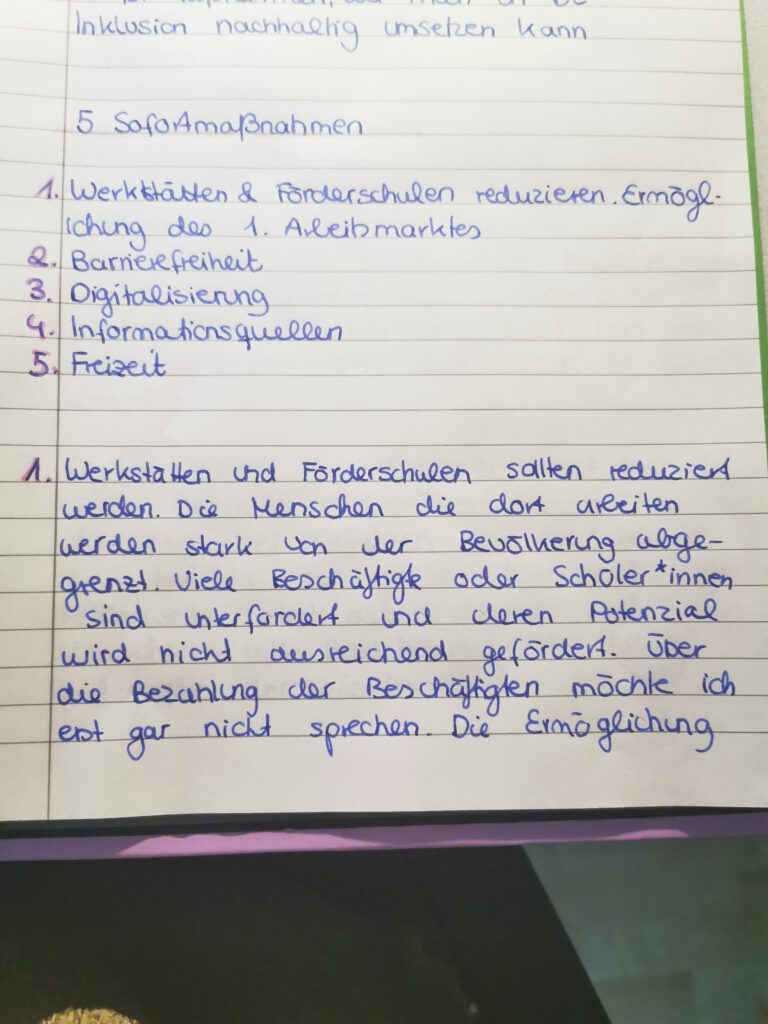 Inklusion nachhaltig umsetzen kann
5 Sofortmaßnahmen
1. Werkstätten & Förderschulen reduzieren. Ermögl-
ichung des 1. Arbeitsmarktes
2. Barrierefreiheit
3. Digitalisierung
4. Informationsquellen
5. Freizeit
1. Werkstätten und Förderschulen sollten reduziert
werden. Die Menschen die dort arbeiten
werden stark von der Bevölkerung abge-
grenzt. Viele Beschäftigte oder Schüler*innen
sind unterfordert und deren Potenzial
wird nicht ausreichend gefördert. Über
die Bezahlung der Beschäftigten möchte ich
erst gar nicht sprechen. Die Ermöglichung